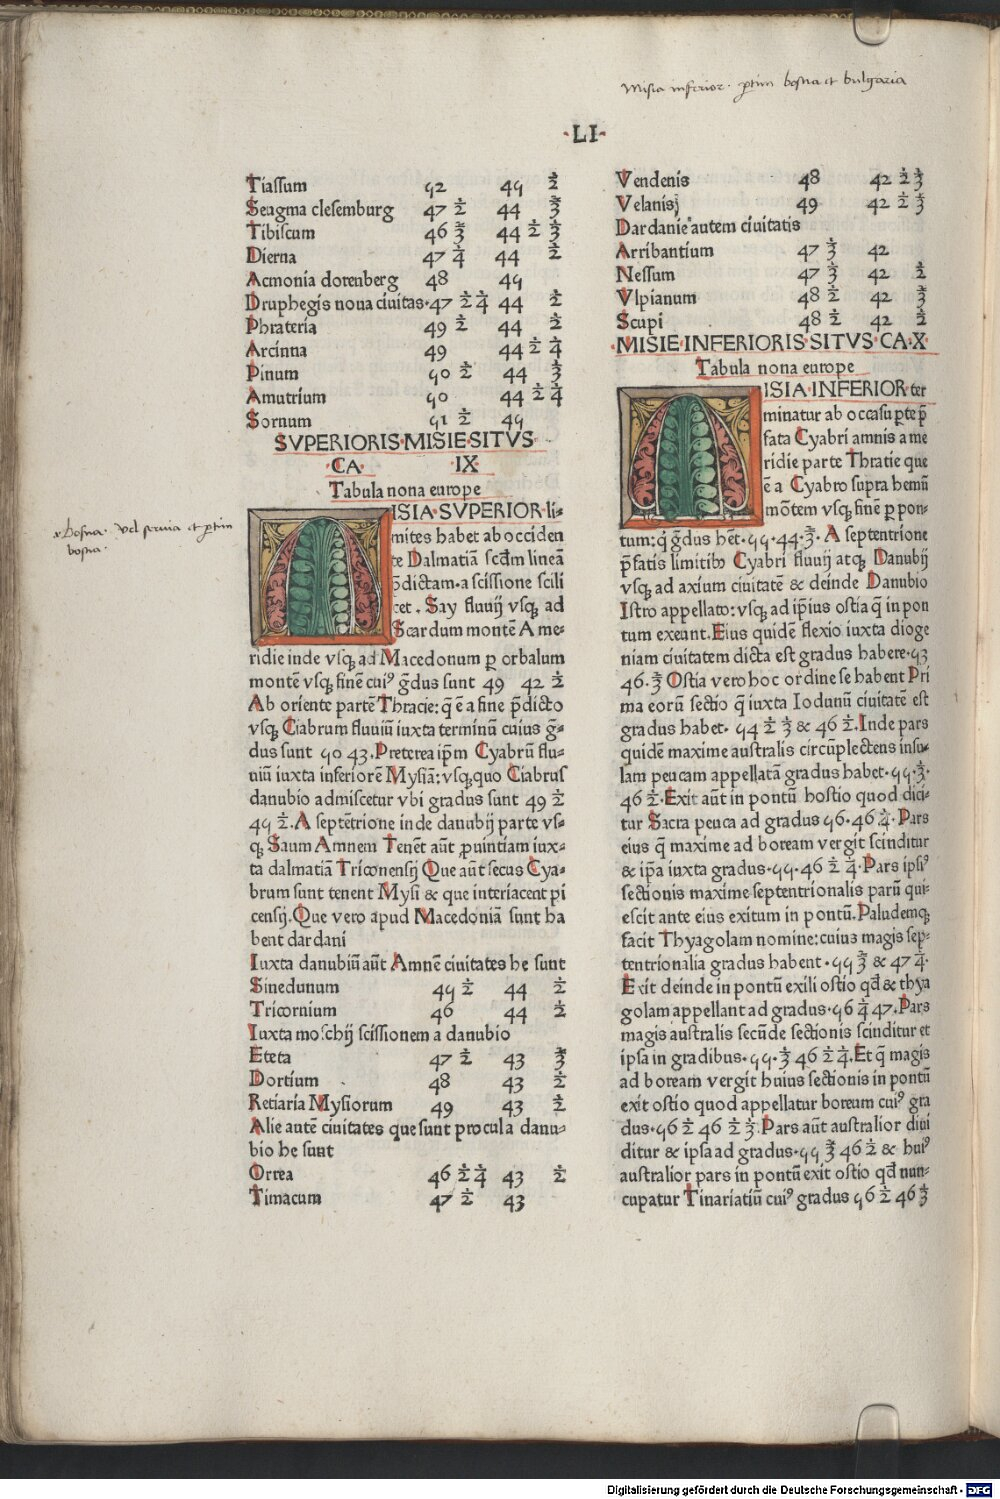 Misia inferior. ꝑtim bosna et bulgaria
·LI·
Tiassum 52 45 ½
Seugma clesemburg 47 ½ 44 ⅔
Tibiscum 46 ⅔ 44 ½ ⅓
Dierna 47 ¼ 44 ½
Acmonia dorenberg 48 45
Druphegis noua ciuitas·47 ½ ¼ 44 ½
Phrateria 49 ½ 44 ½
Arcinna 49 44 ½ ¼
Pinum 50 ½ 44 ⅔
Amutrium 50 44 ½ ¼
Sornum 51 ½ 45
SVPERIORIS·MISIE·SITVS
·CA· IX·
Tabula nona europe
MISIA·SVPERIOR·li-
mites habet ab occiden
te Dalmatiā scd̄m lineā
p̄dictam·a scissione scili
cet. Say fluuij vsq; ad
Scardum montē A me-
ridie inde vsq; ad Macedonum ꝑ orbalum
montē vsq; finē cuiꝰ g̃dus sunt 49 42 ½
Ab oriente partē Thracie: q̄ ē a fine p̄dicto
vsq; Ciabrum fluuiū iuxta terminū cuius g̃-
dus sunt 50 43. Preterea ip̄m Cyabrū flu-
uiū iuxta inferiorē Mysiā: vsq; quo Ciabrus
danubio admiscetur vbi gradus sunt 49 ½
45 ½. A septētrione inde danubij parte vs-
q; Saum Amnem Tenēt aūt ꝓuintiam iux-
ta dalmatiā Triconensij Que aūt secus Cya-
brum sunt tenent Mysi & que interiacent pi
censij. Que vero apud Macedoniā sunt ha
bent dardani
Iuxta danubiū aūt Amnē ciuitates he sunt
Sinedunum 45 ½ 44 ½
Tricornium 46 44 ½
Iuxta moschij scissionem a danubio
Eteta 47 ½ 43 ⅔
Dortium 48 43 ½
Retiaria Mysiorum 49 43 ½
Alie autē ciuitates que sunt procul a danu-
bio he sunt
Orrea 46 ½ ¼ 43 ½
Timacum 47 ½ 43
Bosna. vel seruia et ꝑtim
bosna.
Vendenis 48 42 ½ ⅓
Velanisj 49 42 ½ ⅓
Dardanie autem ciuitatis
Arribantium 47 ⅓ 42
Nessum 47 ⅓ 42 ½
Vlpianum 48 ½ 42 ⅔
Scupi 48 ½ 42 ½
·MISIE·INFERIORIS·SITVS·CA·X·
Tabula nona europe
MISIA·INFERIOR·ter
minatur ab occasu ꝑte p̄
fata Cyabri amnis a me
ridie parte Thratie que
ē a Cyabro supra hemū
mōtem vsq; finē ꝑ pon-
tum: q̇ g̃dus hēt·55·44·⅔· A septentrione
p̄fatis limitibꝰ Cyabri fluuij atq; Danubij
vsq; ad axium ciuitatē & deinde Danubio
Istro appellato: vsq; ad ip̄ius ostia q̄ in pon
tum exeunt. Eius quidē flexio iuxta dioge
niam ciuitatem dicta est gradus habere·53
46·⅔ Ostia vero hoc ordine se habent Pri
ma eorū sectio q̄ iuxta Iodunū ciuitatē est
gradus habet· 54 ½ ⅓ & 46 ½. Inde pars
quidē maxime australis circūplectens insu-
lam peucam appellatā gradus habet·55·⅓·
46 ½·Exit aūt in pontū hostio quod dici-
tur Sacra peuca ad gradus 56·46 ¼·Pars
eius q̄ maxime ad boream vergit scinditur
& ip̄a iuxta gradus·55·46 ½ ¼·Pars ipsiꝰ
sectionis maxime septentrionalis parū qui-
escit ante eius exitum in pontū. Paludemq;
facit Thyagolam nomine: cuius magis sep-
tentrionalia gradus habent·55 ⅔ & 47 ¼·
Exit deinde in pontū exili ostio qd̄ & thya
golam appellant ad gradus·56 ¼ 47·Pars
magis australis secūde sectionis scinditur et
ipsa in gradibus·55·⅓ 46 ½ ¼·Et q̄ magis
ad boream vergit huius sectionis in pontū
exit ostio quod appellatur boreum cuiꝰ gra
dus·56 ½ 46 ½ ⅓·Pars aūt australior diui
ditur & ipsa ad gradus·55 ⅔ 46 ½ & huiꝰ
australior pars in pontū exit ostio qd̄ nun-
cupatur Tinariatiū cuiꝰ gradus 56 ½ 46 ⅔
Digitalisierung gefördert durch die Deutsche Forschungsgemeinschaft - DFG